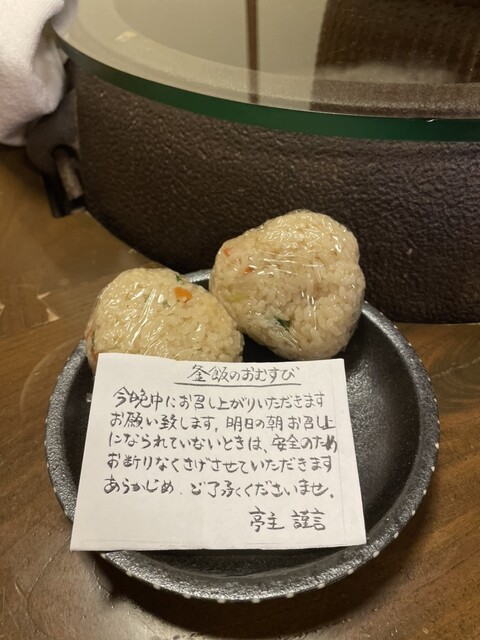 釜飯のおむすび
今晩中にお召し上がりいただきます
お願い致します。明日の朝お召し上
になられていないときは、安全のため
お断りなくさげさせていただきます
あらかじめ、ご了承くださいませ。
亭主 謹言